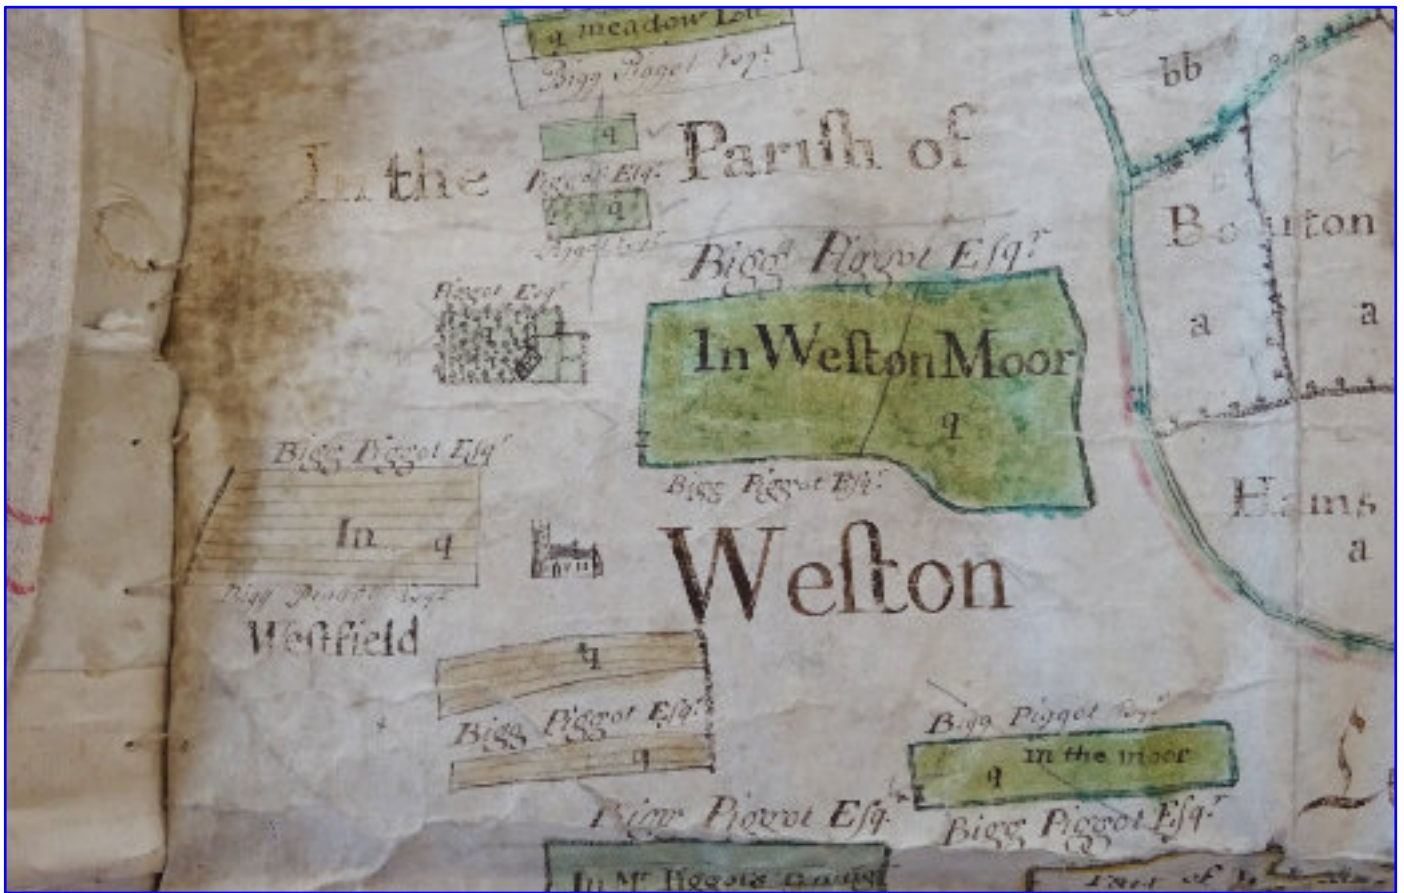 q meadow
Bigg Piggot Esqr.
q
In the Pariſh of
Piggot Eſqr.
q
Piggot Eſqr.
bb
Bourton
a
a
Bigg Piggot Eſqr
In Weſton Moor
q
Bigg Piggot Eſqr.
Piggot Eſqr
Bigg Piggot Eſqr
In q
Bigg Piggot Eſqr
Weſtfield
Weſton
Hams
a
q
Bigg Piggot Eſqr.
q
Bigg Piggot Eſqr
In the moor
q
Bigg Piggot Eſqr
Bigg Piggot Eſq.
In Mr Piggots
Part of